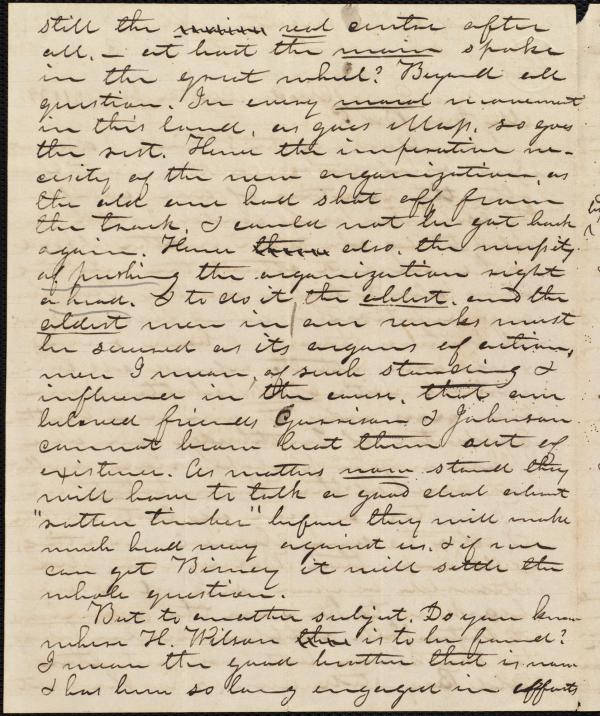 still the real centre after
all, – at least the main spoke
in the great wheel? Beyond all
question. In every moral movement
in this land, as goes Mass. so goes
the rest. Hence the imperative ne-
cesity of the new organization, as
the old one had shot off from
the track, & could not be got back
again. Hence also, the necessity
of pushing the organization right
ahead. & to do it, the ablest, and the
oldest men in our ranks must
be secured as its organs of action,
men I mean, of such standing &
influence in the cause, that our
beloved friends Garrison & Johnson
cannot brow beat them out of
existence. As matters now stand they
will have to talk a good deal about
"rotten timber" before they will make
much head way against us. & if we
can get Birney it will settle the
whole question.
But to another subject. Do you know
where H. Wilson is to be found?
I mean the good brother that is now
& has been so long engaged in efforts